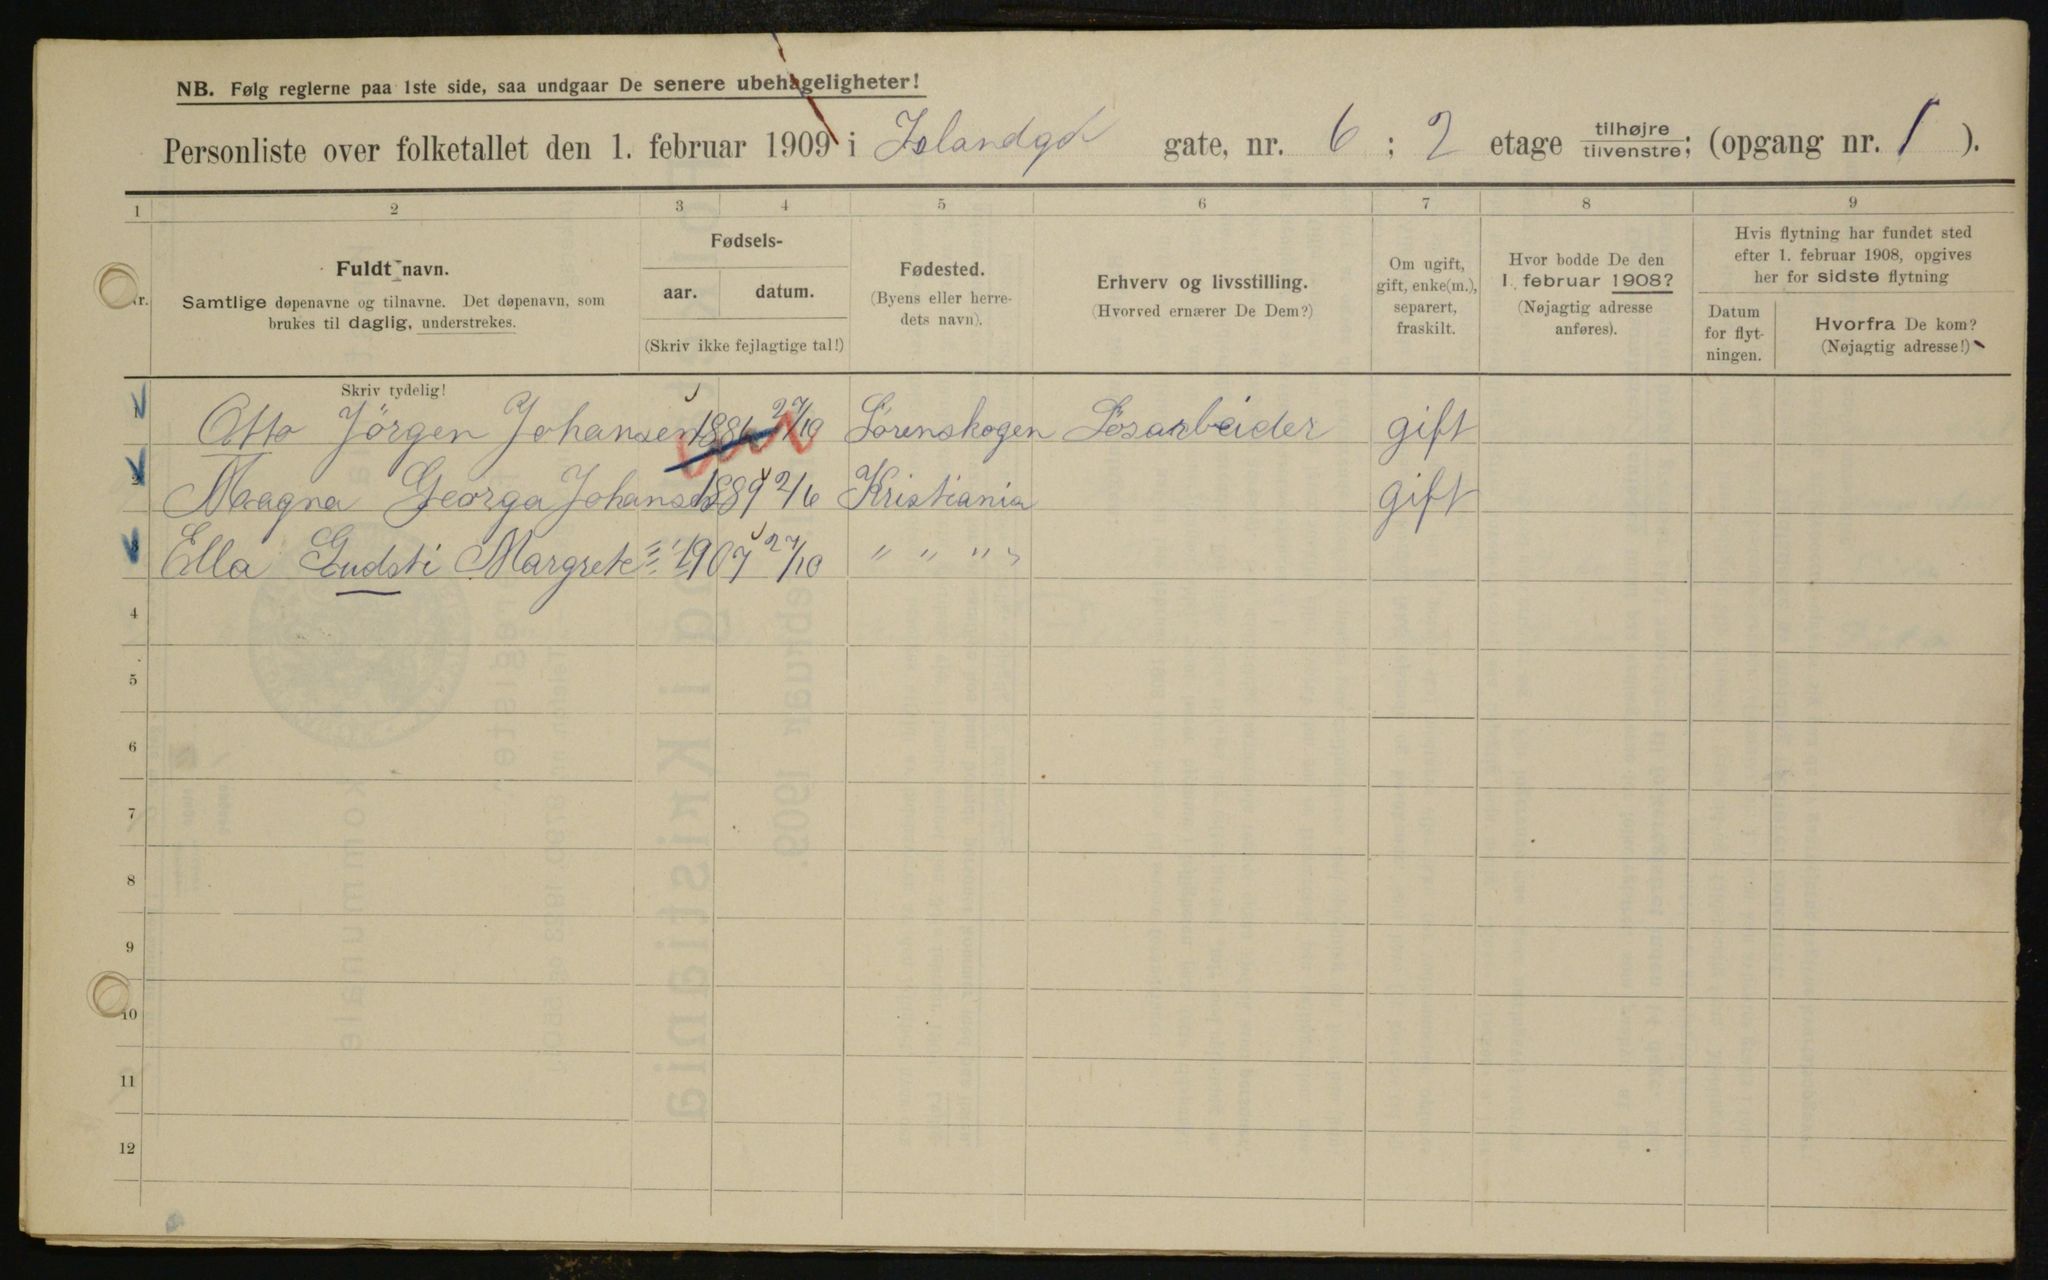 NB. Følg reglerne paa 1ste side, saa undgaar De senere ubehageligheter!
Personliste over folketallet den 1. februar 1909 i Islandgd gate, nr. 6 ; 2 etage tilhøjre tilvenstre; (opgang nr. 1 ).
1 2 3 4 5 6 7 8 9
Nr.
Fuldt navn.
Samtlige døpenavne og tilnavne. Det døpenavn, som
brukes til daglig, understrekes.
Fødsels-
aar. datum.
(Skriv ikke fejlagtige tal!)
Fødested.
(Byens eller herre-
dets navn).
Erhverv og livsstilling.
(Hvorved ernærer De Dem?)
Om ugift,
gift, enke(m.),
separert,
fraskilt.
Hvor bodde De den
1. februar 1908?
(Nøjagtig adresse
anføres).
Hvis flytning har fundet sted
efter 1. februar 1908, opgives
her for sidste flytning
Datum
for flyt-
ningen.
Hvorfra De kom?
(Nøjagtig adresse!)
Skriv tydelig!
1 Otto Jörgen Johansen 1886 27/10 Sørenskogen Løsarbeider gift
2 Magna Georga Johansen 1889 2/6 Kristiania gift
3 Ella Gudsti Margrete " 1907 27/10 " " " "
4
5
6
7
8
9
10
11
12